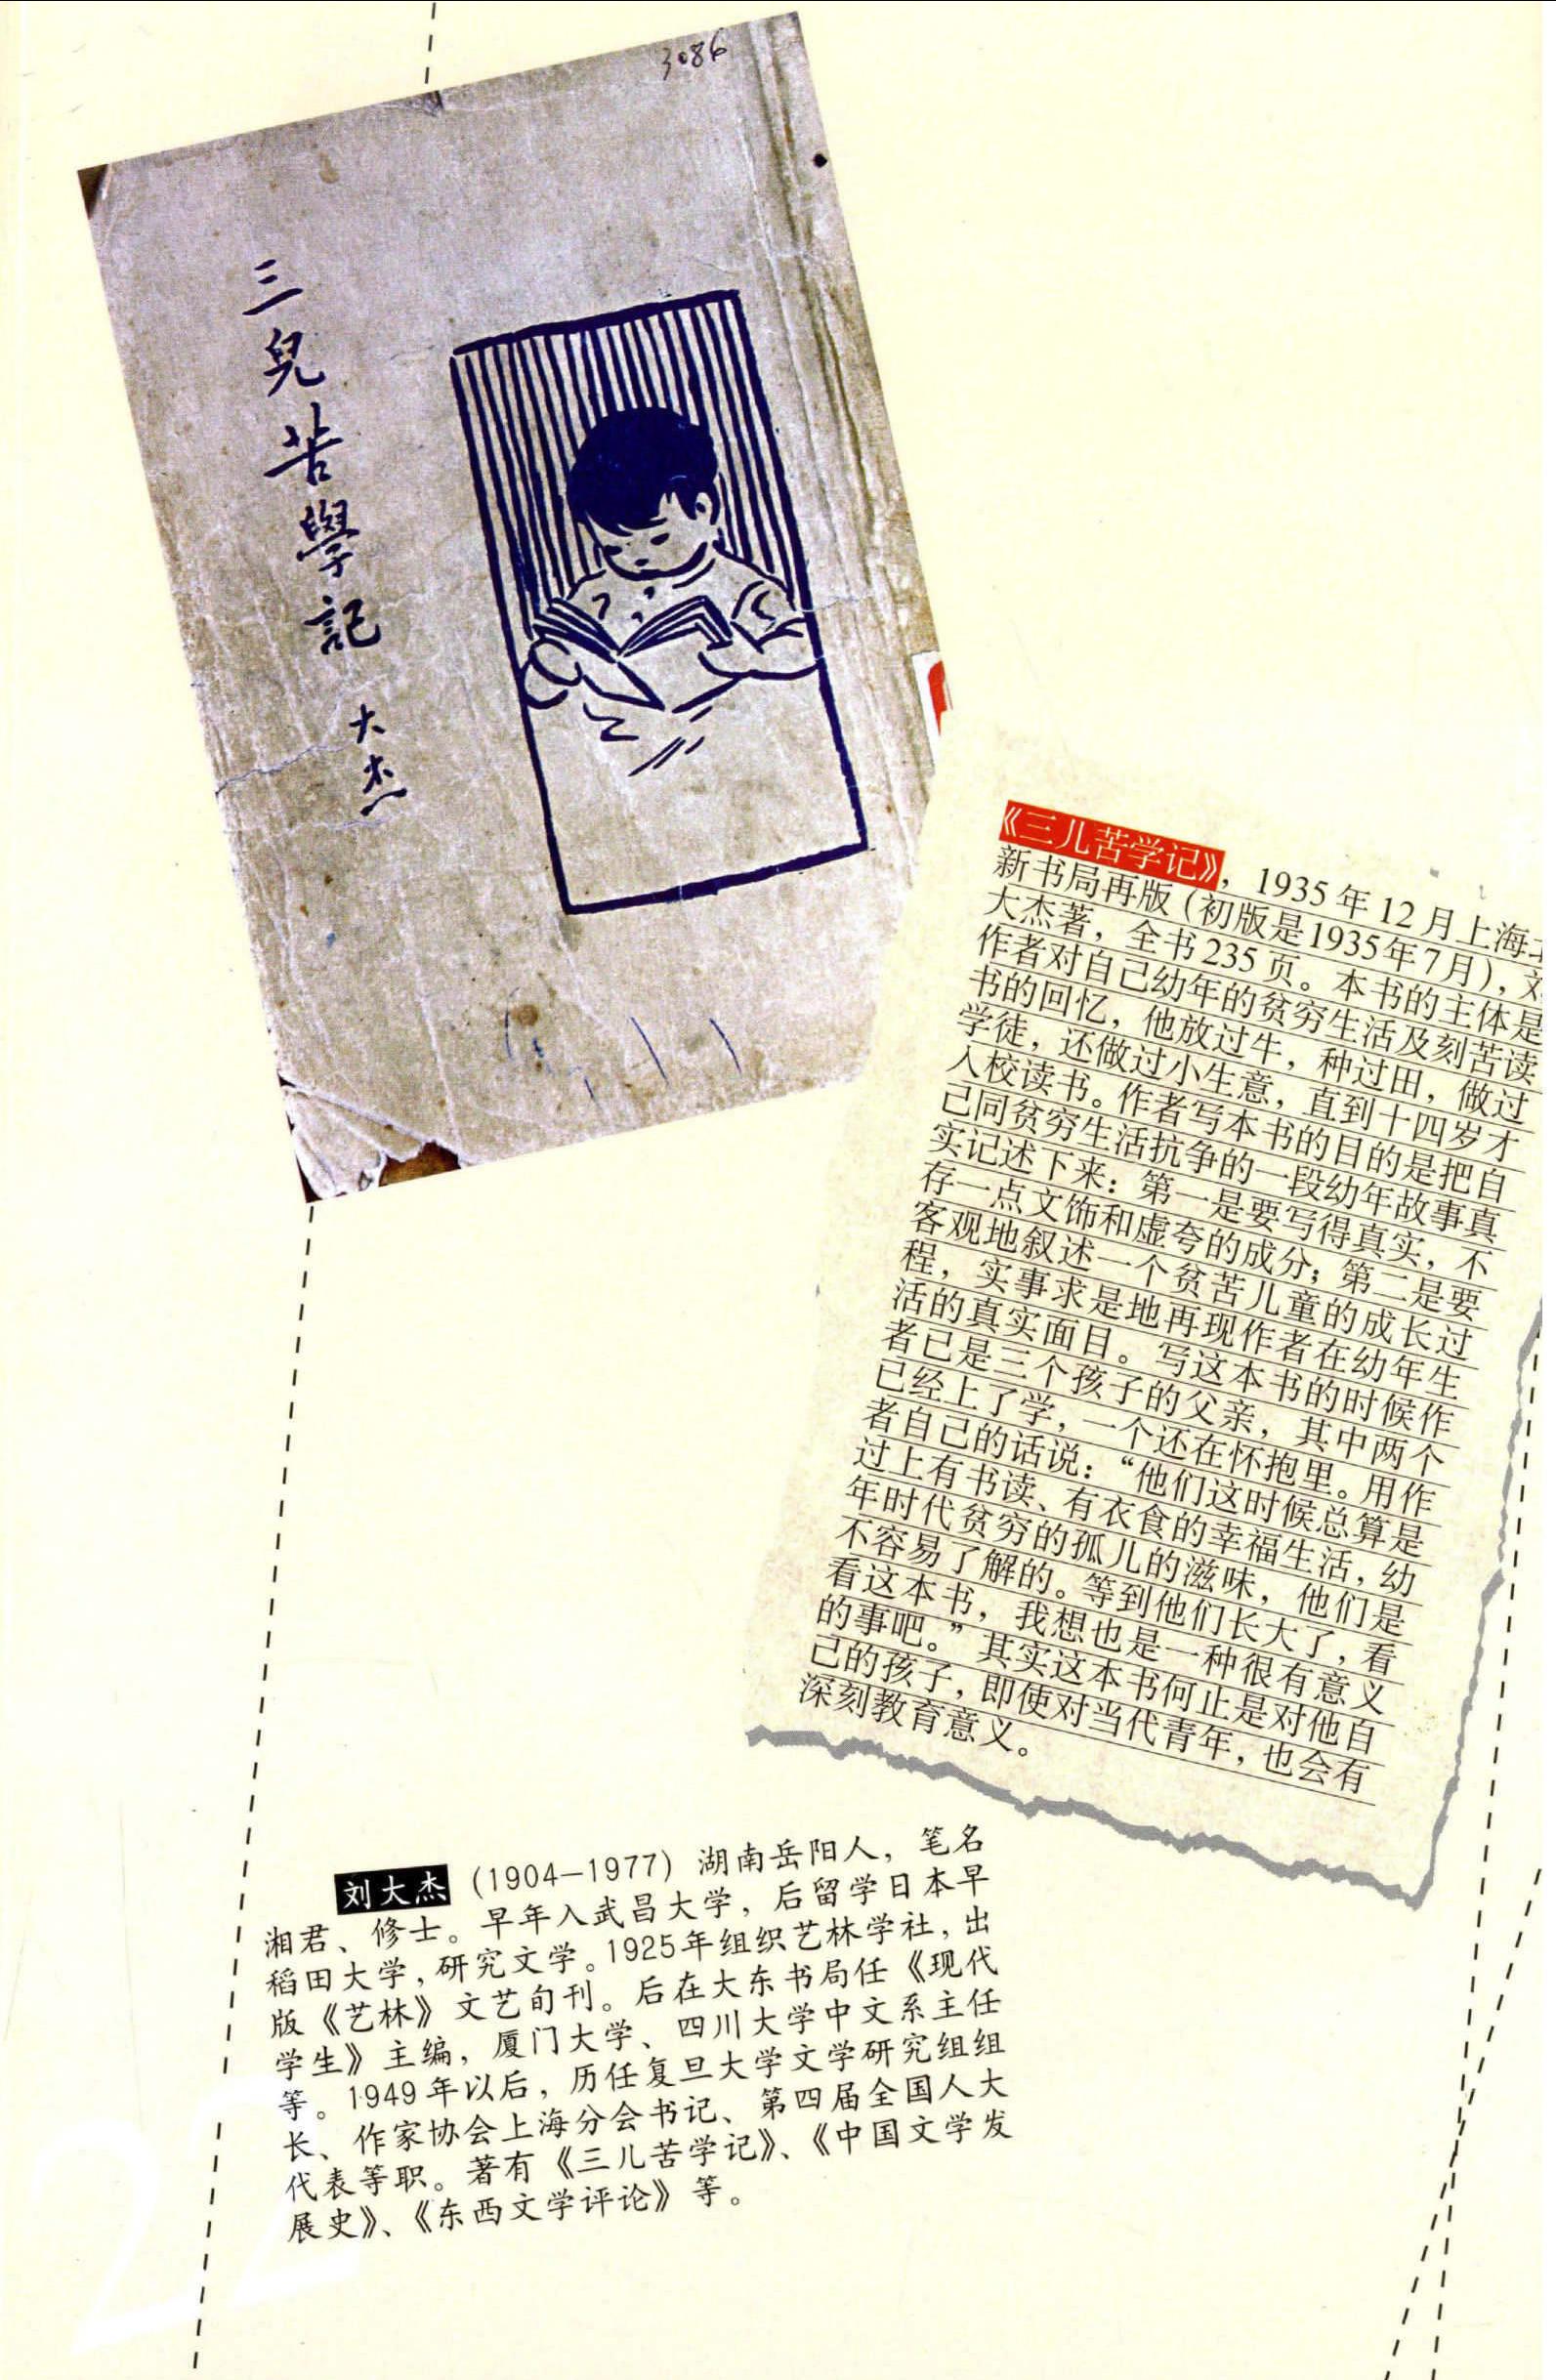 3086
三兒苦學記
大杰
《三儿苦学记》，1935年12月上海
新书局再版（初版是1935年7月），刘
大杰著，全书235页。本书的主体是
作者对自己幼年的贫穷生活及刻苦读
书的回忆，他放过牛，种过田，做过
学徒，还做过小生意，直到十四岁才
入校读书。作者写本书的目的是把自
己同贫穷生活抗争的一段幼年故事真
实记述下来：第一是要写得真实，不
存一点文饰和虚夸的成分；第二是要
客观地叙述一个贫苦儿童的成长过
程，实事求是地再现作者在幼年生
活的真实面目。写这本书的时候作
者已是三个孩子的父亲，其中两个
已经上了学，一个还在怀抱里。用作
者自己的话说：“他们这时候总算是
过上有书读、有衣食的幸福生活，幼
年时代贫穷的孤儿的滋味，他们是
不容易了解的。等到他们长大了，看
看这本书，我想也是一种很有意义
的事吧。”其实这本书何止是对他自
己的孩子，即使对当代青年，也会有
深刻教育意义。
刘大杰（1904—1977）湖南岳阳人，笔名
湘君、修士。早年入武昌大学，后留学日本早
稻田大学，研究文学。1925年组织艺林学社，出
版《艺林》文艺旬刊。后在大东书局任《现代
学生》主编，厦门大学、四川大学中文系主任
等。1949年以后，历任复旦大学文学研究组组
长、作家协会上海分会书记、第四届全国人大
代表等职。著有《三儿苦学记》、《中国文学发
展史》、《东西文学评论》等。